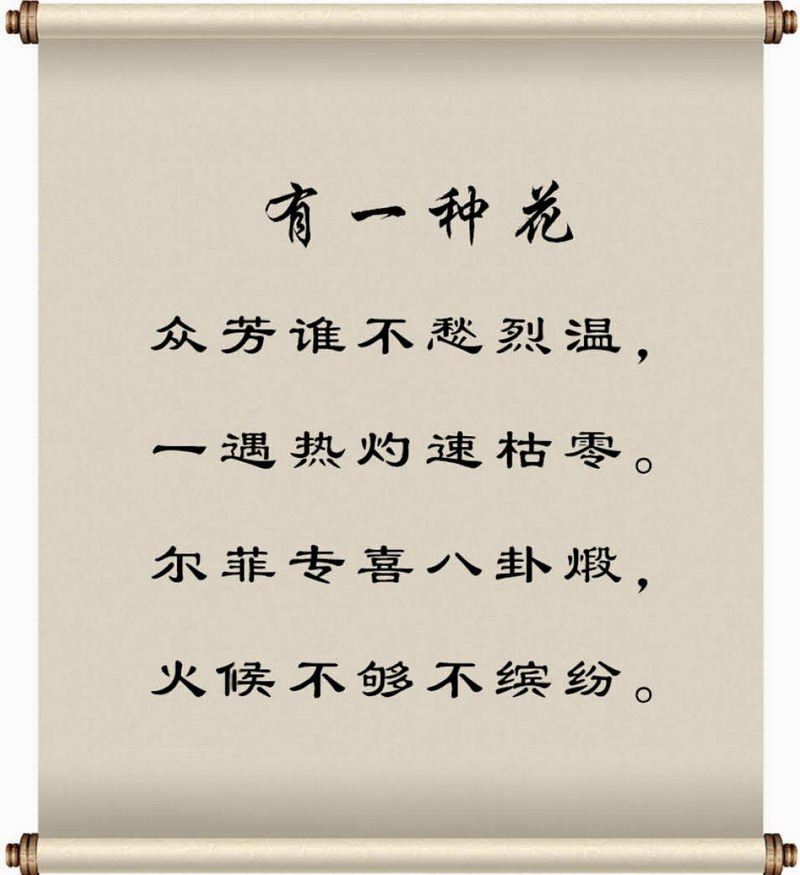 有一种花
众芳谁不愁烈温，
一遇热灼速枯零。
尔菲专喜八卦煅，
火候不够不缤纷。